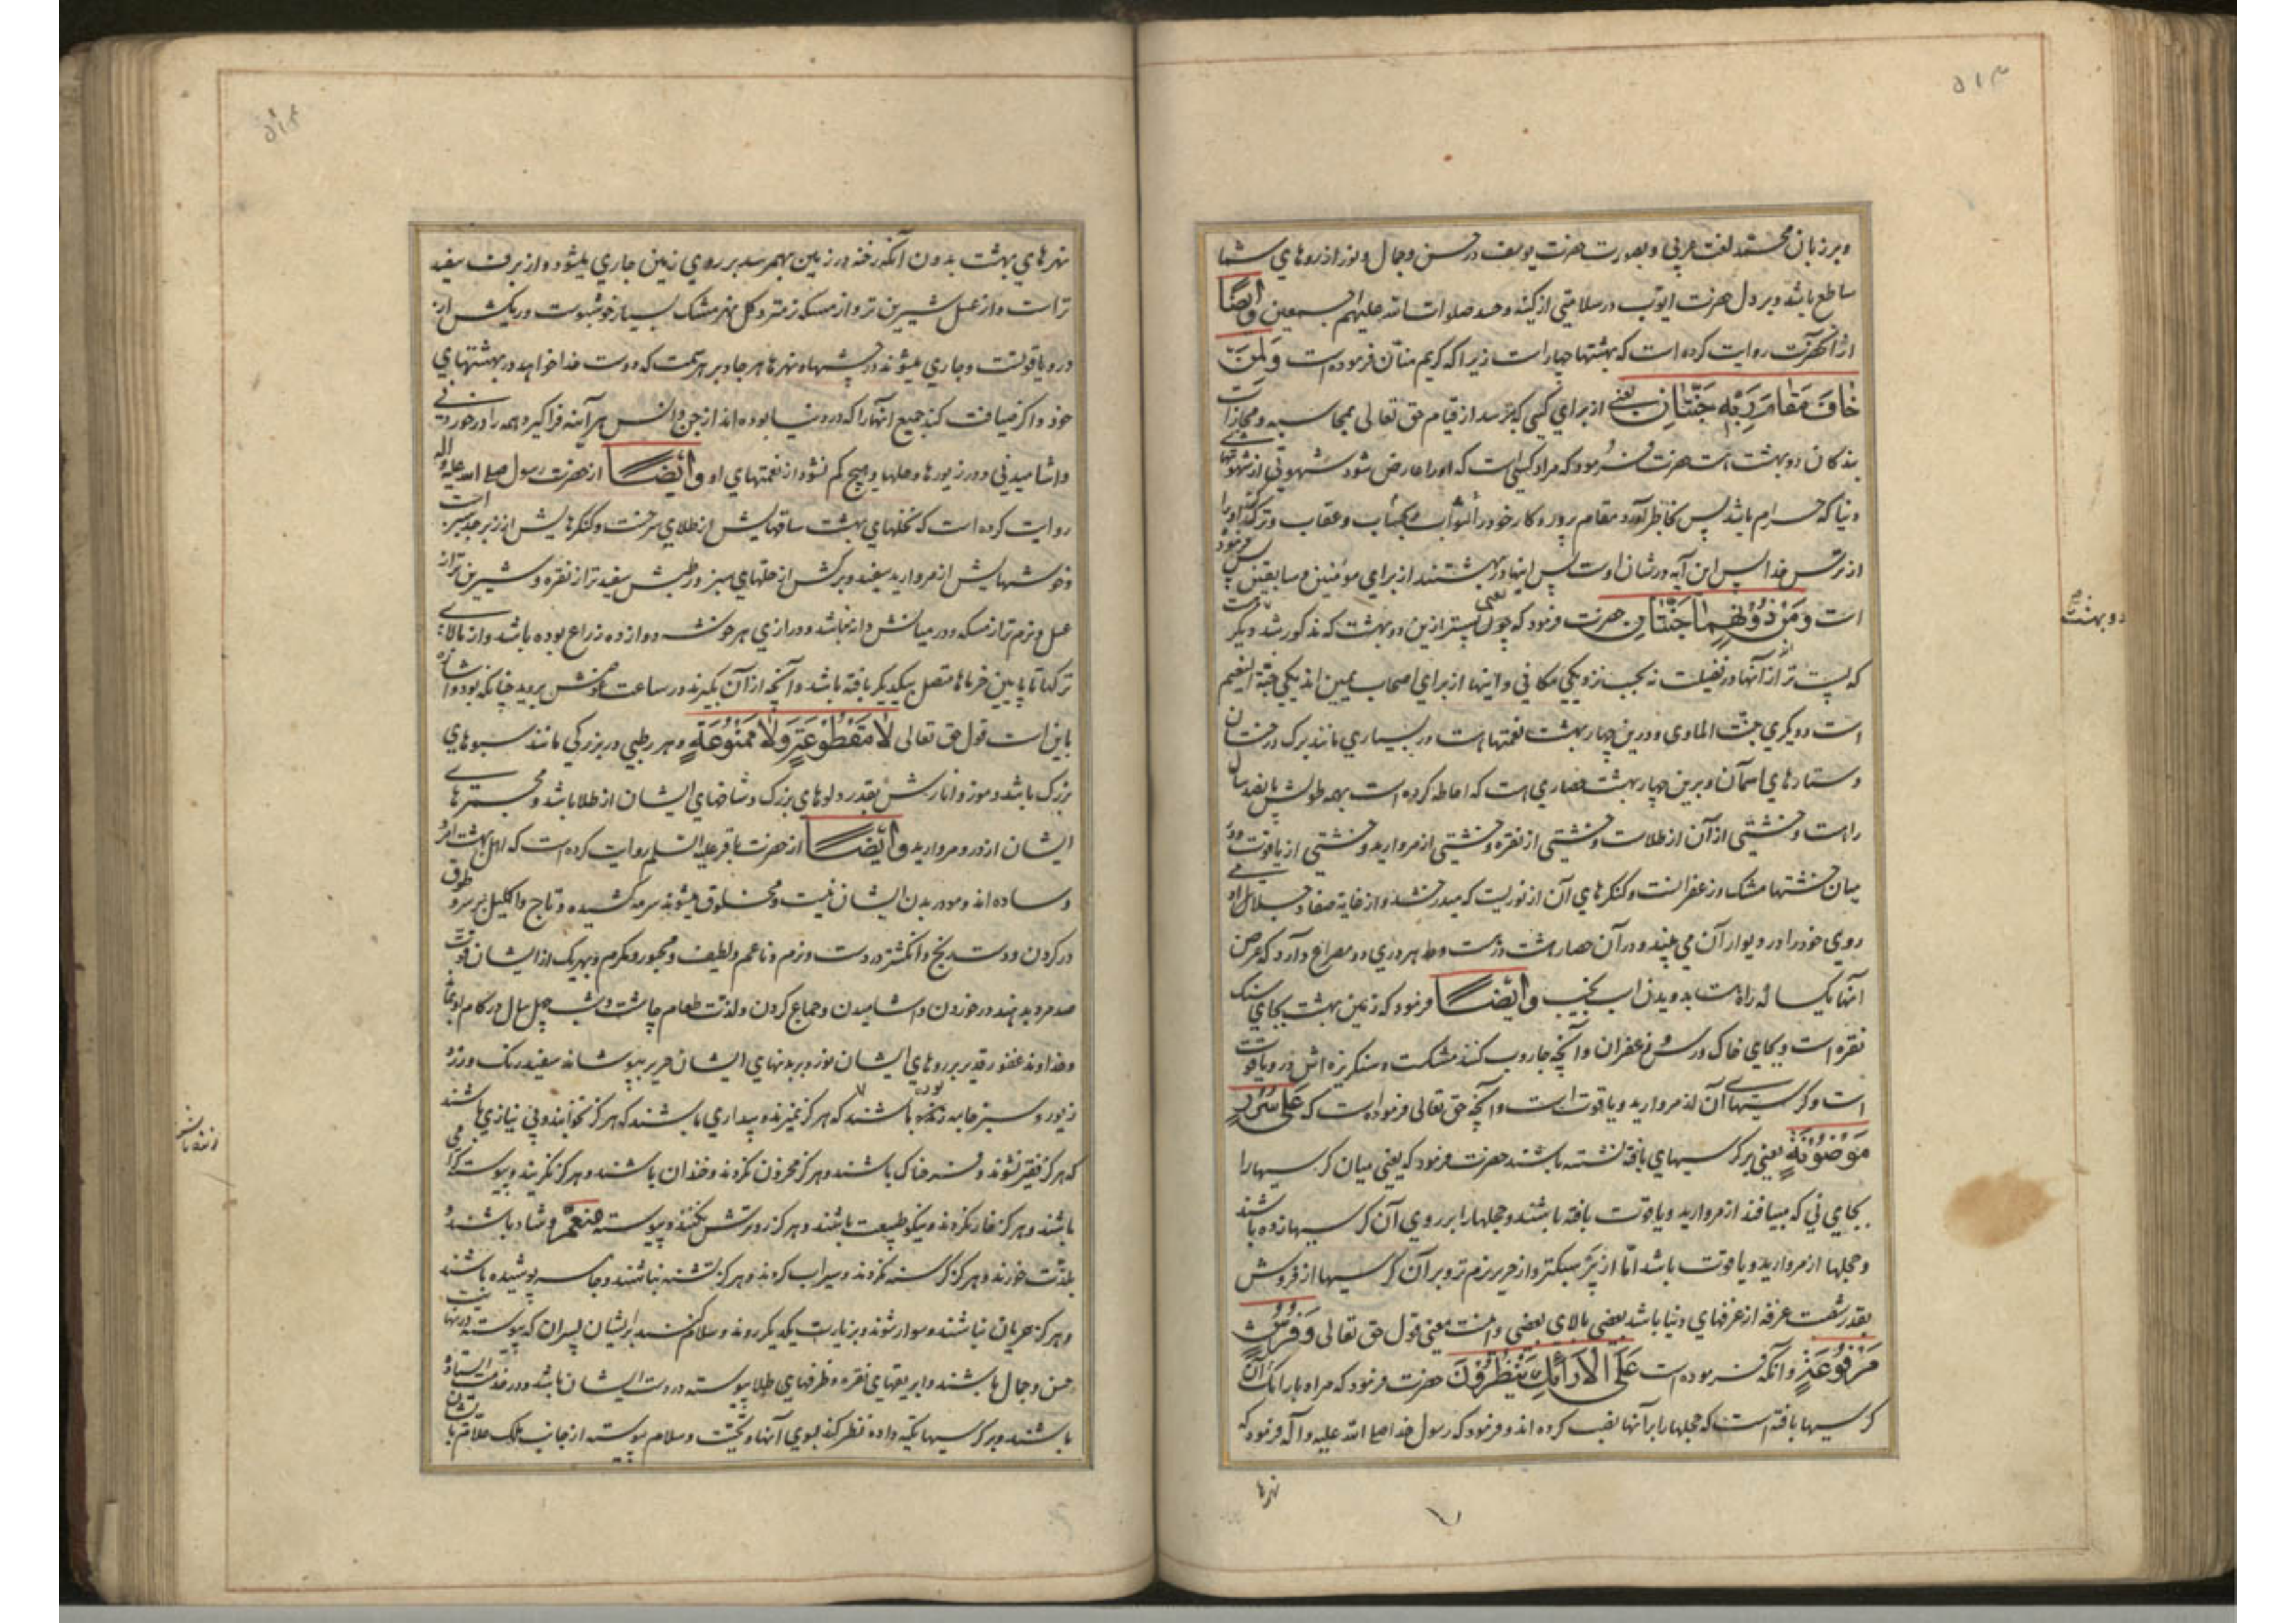 ۵۱۳
و بر زبان محمّد لغت عربی و بصورت حضرت یوسف در حسن و جمال و نور از روهای شما
ساطع باشد و بر دل حضرت ایوّب در سلامتی از کینه و حسد صلوات الله علیهم اجمعین وایضًا
از آنحضرت روایت کرده است که بهشتها چهار است زیرا که کریم منّان فرموده است وَلِمَنْ
خَافَ مَقَامَ رَبِّهِ جَنَّتَانِ یعنی از برای کسی که بترسد از قیام حق تعالی بمحاسبه و مجازات
بندکان دو بهشت است حضرت فرمود که مراد کسی است که او را عارض شود شهوتی از شهوتهای
دنیا که حرام باشد پس بخاطر آورد مقام پروردکار خود را و ثواب و حساب و عقاب و ترک کند او را
از ترس خدا پس این آیه در شان اوست پس اینها دو بهشتند از برای مومنین و سابقین پس فرمود
است وَمِنْ دُونِهِمَا جَنَّتَانِ حضرت فرمود که یعنی پستر ازین دو بهشت که مذکور شد دو بهشت دیگر
که پست تر از آنها در فضیلت نه بحسب نزدیکی مکانی و اینها از برای اصحاب یمین اند یکی جنّة النعیم
است و دیکری جنّت الماوی و درین چهار بهشت نعمتها است در بسیاری مانند برک درختان
و ستارهای آسمان و برین چهار بهشت حصاری است که احاطه کرده است بهمه طولش پانصد سال
راه است و خشتی از آن از طلاست و خشتی از نقره و خشتی از مروارید و خشتی از یاقوت و در
میان خشتها مشک و زعفرانست و کنکرهای آن از نوریست که میدرخشد و از غایة صفا و جلا آدمی
روی خود را در دیوار آن می بیند و در آن حصار هشت در است و هر دری دو مصراع دارد که عرض
آنها یکساله راه است بدویدن اسب نجیب وایضًا فرمود که زمین بهشت بجای سنک
نقره است و بجای خاک ورس و زعفران و آنچه جاروب کنند مشکست و سنکریزه اش در و یاقوت
است و کرسیهای آن از مروارید و یاقوت است و آنچه حق تعالی فرموده است که عَلَی سُرُرٍ
مَوْضُونَةٍ یعنی بر کرسیهای بافته نشسته باشند حضرت فرمود که یعنی میان کرسیها را
بجای نی که میبافند از مروارید و یاقوت بافته باشند و حجلها را بر روی آن کرسیها زده باشند
و حجلها از مروارید و یاقوت باشد امّا از پر سبکتر و از حریر نرم تر و بر آن کرسیها از فروش
بقدر شصت غرفه از غرفهای دنیا باشد بعضی بالای بعضی و اینست معنی قول حق تعالی وَفُرُشٍ
مَرْفُوعَةٍ و آنکه فرموده است عَلَی الْاَرَائِکِ یَنْظُرُونَ حضرت فرمود که مراد بارائک آن
کرسیها بافته است که حجلها را بر آنها نصب کرده اند و فرمود که رسول خدا صلی الله علیه و آله فرمود که
نهرها
دو بهشت
۵۱۴
نهرهای بهشت بدون آنکه رخنه در زمین بهمرسد بر روی زمین جاری میشود و از برف سفید
تر است و از عسل شیرین تر و از مسکه نرمتر و کل نهر مشک بسیار خوشبوست و ریکش از
در و یاقوتست و جاری میشوند در چشمها و نهرها هر جا و بر هر سمت که دوست خدا خواهد در بهشتهای
خود و اکر ضیافت کند جمیع آنها را که در دنیا بوده اند از جن و انس هر آینه فرا کیرد همه را در خوردنی
و اشامیدنی و در زیورها و حلها و هیچ کم نشود از نعمتهای او وایضًا از حضرت رسول صلی الله علیه و آله
روایت کرده است که نخلهای بهشت ساقهایش از طلای سرخست و کنکرهایش از زبرجد سبز است
و خوشهایش از مروارید سفید و برکش از حلهای سبز و رطبش سفید تر از نقره و شیرین تر از
عسل و نرم تر از مسکه و در میانش دانه نباشد و درازی هر خوشه دوازده ذراع بوده باشد و از بالای
ترکها تا پایین خرماها متصل بیکدیکر بافته باشد و آنچه از آن بکیرند در ساعت عوضش بروید چنانکه بود و اشاره
باین است قول حق تعالی لَا مَقْطُوعَةٍ وَلَا مَمْنُوعَةٍ و هر رطبی در بزرکی مانند سبوهای
بزرک باشد و موز و انارش بقدر دلوهای بزرک و شاخهای ایشان از طلا باشد و مجمرهای
ایشان از در و مروارید وایضًا از حضرت باقر علیه السّلم روایت کرده است که اهل بهشت امرد
و ساده اند و مو در بدن ایشان نیست و مخلوق میشوند سرمه کشیده و تاج و اکلیل بر سر و طوق
در کردن و دست برنج و انکشتر در دست و نرم و ناعم و لطیف و محبور و مکرم و بهر یک از ایشان قوّت
صد مرد بدهند در خوردن و اشامیدن و جماع کردن و لذّت طعام چاشت و شب چهل سال در کام او بماند
و خداوند غفور قدیر بر روهای ایشان نور و بر بدنهای ایشان حریر بپوشاند سفید رنک و زرد
زیور و سبز جامه زنده باشند که هرکز نمیرند و بیداری باشند که هرکز نخوابند و بی نیازیها باشند
که هرکز فقیر نشوند و فرحناک باشند و هرکز محزون نکردند و خندان باشند و هرکز نکریند و پیوسته کرامی
باشند و هرکز خار نکردند و نیکو طبیعت باشند و هرکز رو ترش نکنند و پیوسته منعم و شاد باشند و
بلذّت خورند و هرکز کرسنه نکردند و سیراب کردند و هرکز تشنه نباشند و جامه پوشیده باشند
و هرکز عریان نباشند و سوار شوند و بزیارت یکدیکر روند و سلام کنند بر ایشان پسران که پیوسته در نهایت
حسن و جمال باشند و ابریقهای نقره و ظرفهای طلا پیوسته در دست ایشان باشد و در خدمت ایستاده
باشند و بر کرسیها تکیه داده نظر کنند بسوی آنها و تحیّت و سلام پیوسته از جانب ملک علّام باایشان